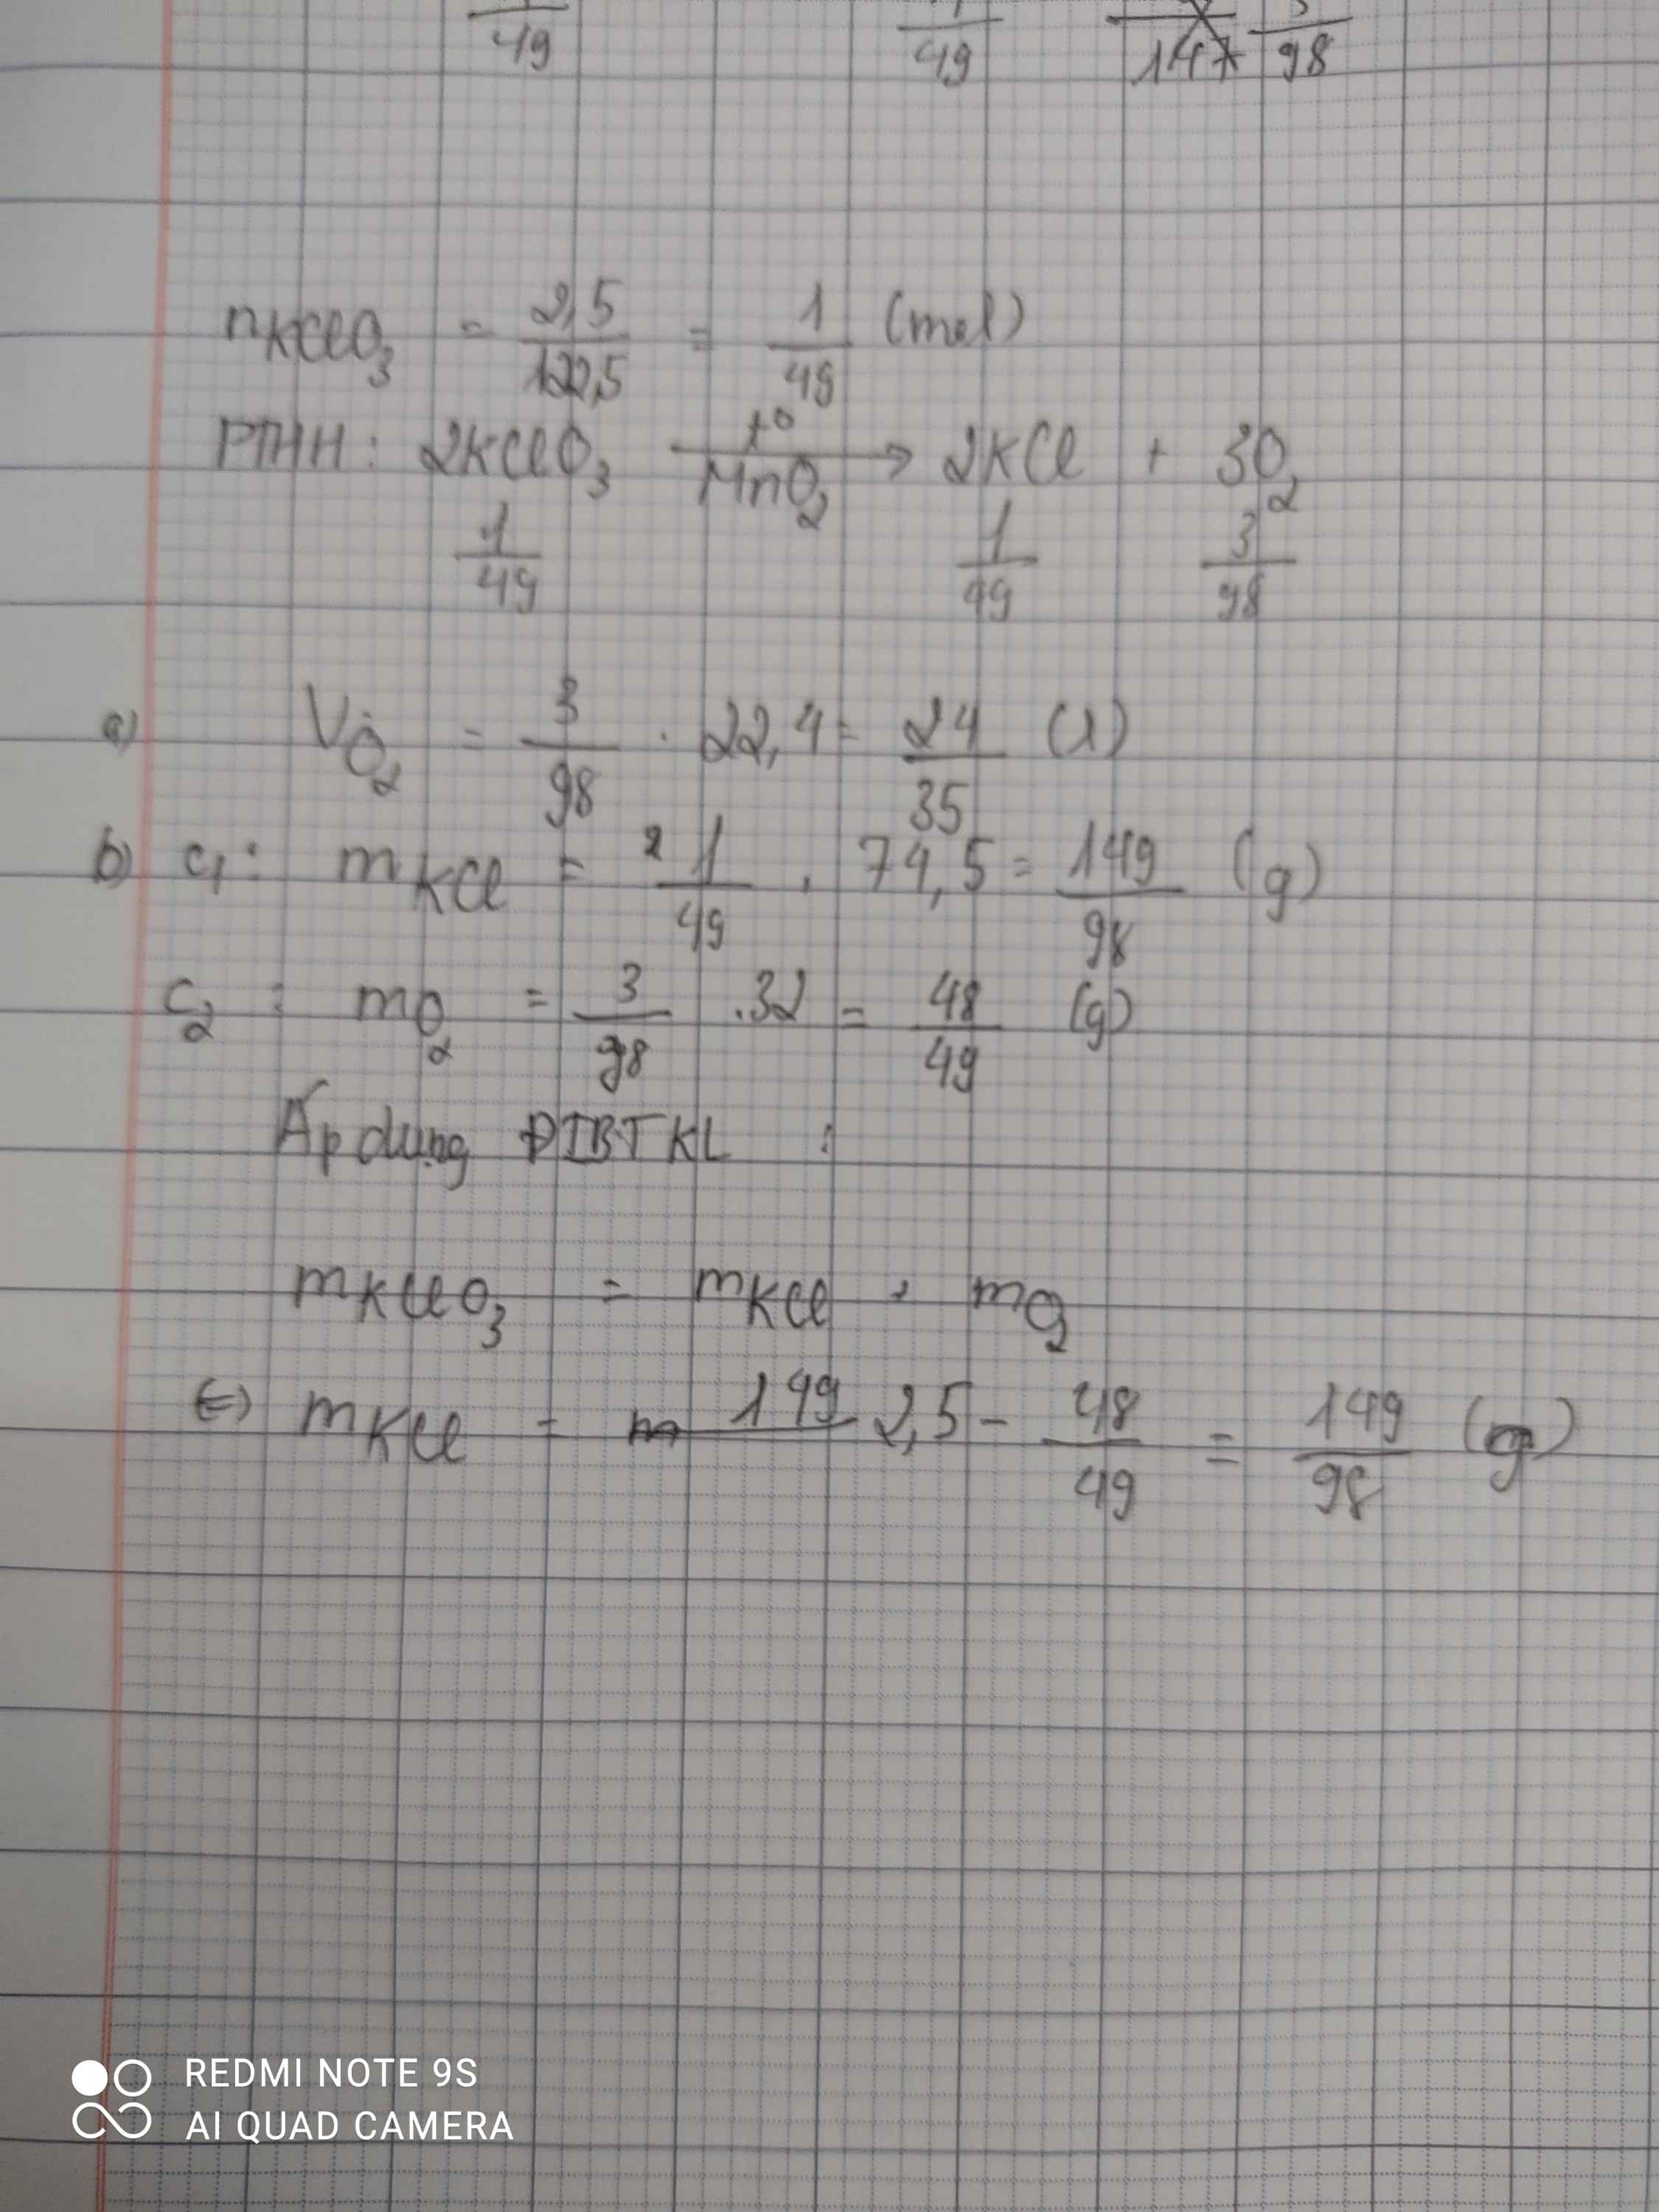 1/49 1/49 147 3/98
nKClO3 = 2,5/122,5 = 1/49 (mol)
PTHH: 2KClO3 t° MnO2 → 2KCl + 3O2
1/49 1/49 3/98
a) VO2 = 3/98 . 22,4 = 24/35 (l)
b) c1: mKCl = 1/49 . 74,5 = 149/98 (g)
c2: mO2 = 3/98 .32 = 48/49 (g)
Áp dụng ĐLBTKL :
mKClO3 = mKCl + mO2
(=) mKCl = m 149 2,5 - 48/49 = 149/98 (g)
REDMI NOTE 9S
AI QUAD CAMERA